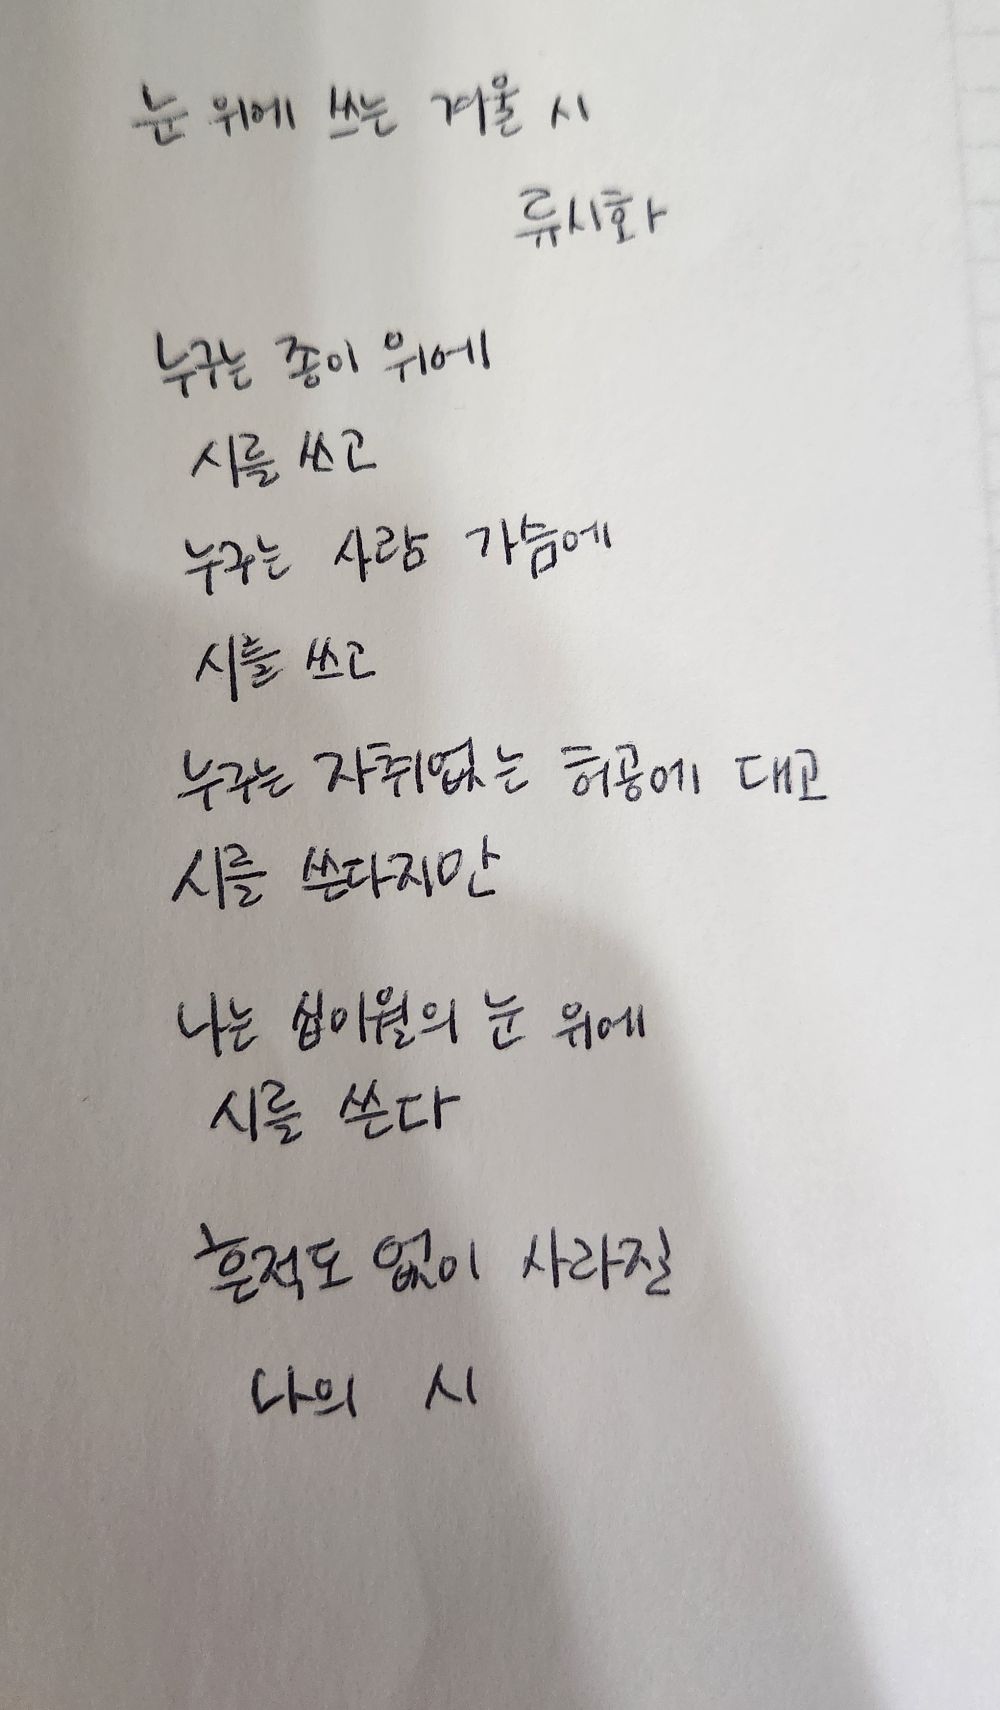 눈 위에 쓰는 겨울 시
류시화
누구는 종이 위에
시를 쓰고
누구는 사람 가슴에
시를 쓰고
누구는 자취없는 허공에 대고
시를 쓴다지만
나는 십이월의 눈 위에
시를 쓴다
흔적도 없이 사라질
나의 시